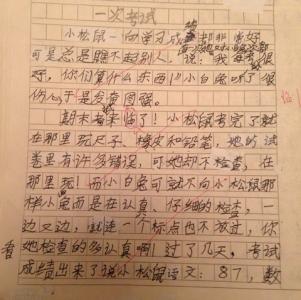 一次考试
小松鼠一向学习成绩都非常好
可是总是瞧不起别人。说：我每考很
好，你们算什么东西！小白兔听了很
伤心于是发奋图强。
期末考来临了！小松鼠考完了就
在那里玩尺子、橡皮和铅笔，她的试
卷里有许多错误，可她却不检查，在
那里玩！而小白兔可就不向小松鼠那
样小兔而是在认真、仔细的检查，一
边又边，就连一个标点也不放过，你
看她检查的多认真啊！过了几天，考试
成绩出来了说小松鼠语文：87，数